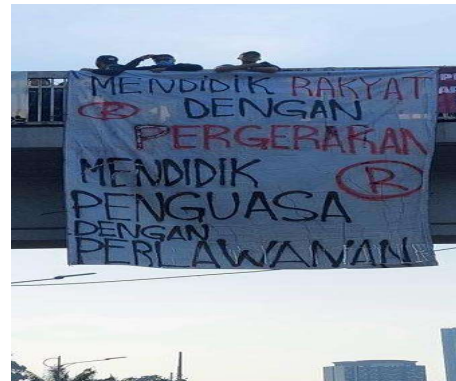 MENDIDIK RAKYAT
R DENGAN
PERGERAKAN
MENDIDIK R
PENGUASA
DENGAN
PERLAWANAN